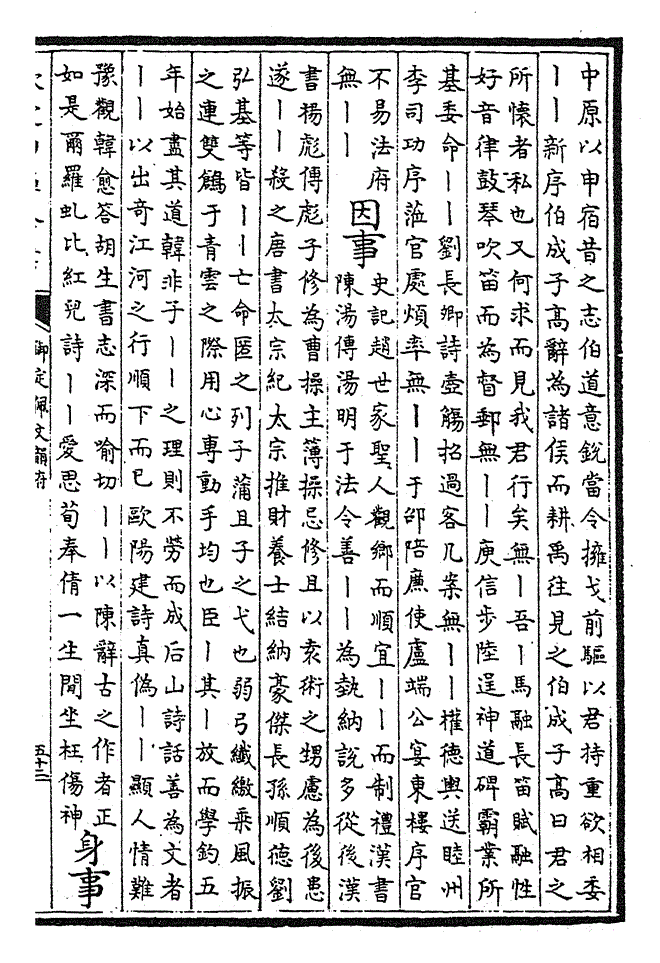 中原以申宿昔之志伯道意銳當今擁戈前驅以君持重欲相委
丨丨新序伯成子高辭為諸侯而耕禹往見之伯成子高曰君之
所懷者私也又何求而見我君行矣無丨吾丨馬融長笛賦融性
好音律鼓琴吹笛而為督郵無丨丨庾信步陸逞神道碑霸業所
基委命丨丨劉長卿詩壺觴招過客几案無丨丨權德輿送睦州
李司功序蒞官處煩率無丨丨于邵陪廉使盧端公宴東樓序官
不易法府無丨丨
因事
史記趙世家聖人觀鄉而順宜丨丨而制禮漢書
陳湯傳湯明于法令善丨丨為埶納說多從後漢
書楊彪傳彪子修為曹操主簿操忌修且以袁術之甥慮為後患
遂丨丨殺之唐書太宗紀太宗推財養士結納豪傑長孫順德劉
弘基等皆丨丨亡命匿之列子蒲且子之弋也弱弓纖繳乘風振
之連雙鶬于青雲之際用心專動手均也臣丨其丨放而學釣五
年始盡其道韓非子丨丨之理則不勞而成后山詩話善為文者
丨丨以出奇江河之行順下而已歐陽建詩真偽丨丨顯人情難
豫觀韓愈答胡生書志深而喻切丨丨以陳辭古之作者正
如是爾羅虬比紅兒詩丨丨愛思荀奉倩一生閒坐枉傷神
身事
御定佩文韻府
五十三